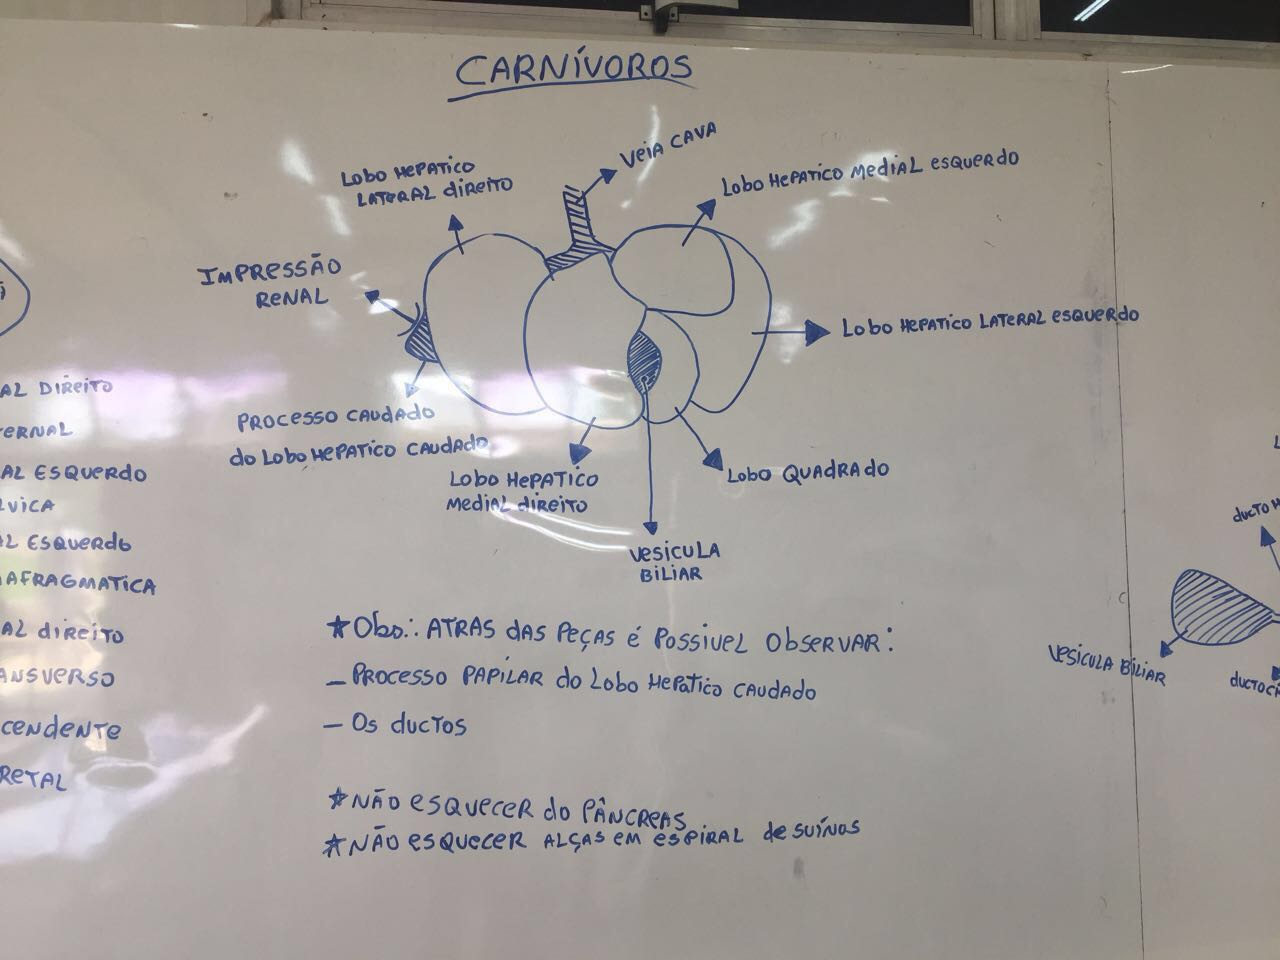 CARNÍVOROS
VEIA CAVA
LOBO HEPATICO
LATERAL DIREITO
LOBO HEPATICO MEDIAL ESQUERDO
IMPRESSÃO
RENAL
LOBO HEPATICO LATERAL ESQUERDO
PROCESSO CAUDADO
DO LOBO HEPATICO CAUDADO
LOBO HEPATICO
MEDIAL DIREITO
LOBO QUADRADO
VESICULA
BILIAR
★Obs.: ATRAS DAS PEÇAS É POSSIVEL OBSERVAR:
– PROCESSO PAPILAR DO LOBO HEPATICO CAUDADO
– OS DUCTOS
★NÃO ESQUECER DO PÂNCREAS
★NÃO ESQUECER ALÇAS EM ESPIRAL DE SUÍNOS
AL DIREITO
ERNAL
AL ESQUERDO
LVICA
AL ESQUERDO
AFRAGMATICA
AL DIREITO
ANSVERSO
CENDENTE
RETAL
DUCTO H
VESICULA BILIAR
DUCTO CÍ